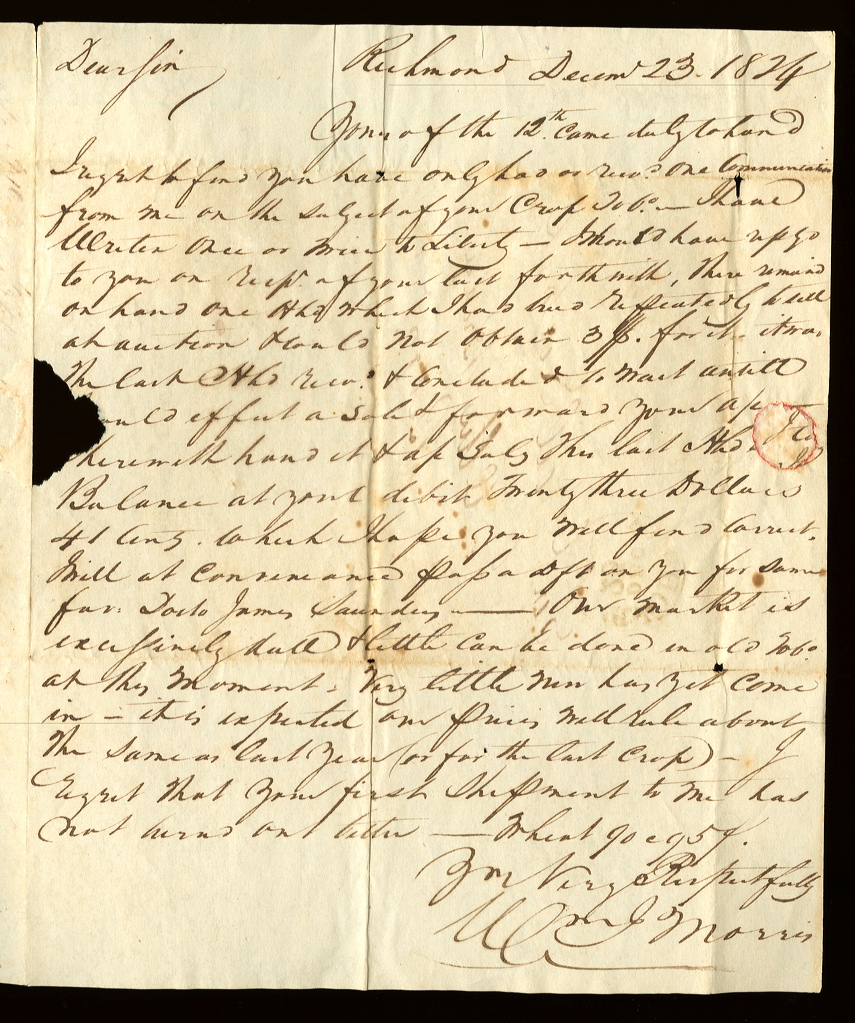 Dear Sir Richmond Decemr 23. 1824
Yours of the 12th came duly to hand
I regret to find you have only had or recd one Communication
from me on the subject of your Crop Tobo — I have
Writen once or twice to Liberty — I should have
to you on recpt of your last forthwith, there remaind
on hand one Hhd which I had tried repeatedly to sell
at auction & could not obtain 3$. for it. it was
the last Hhd recd & concluded to wait untill
could effect a Sale & forward your a/c
herewith hand it & a/c Sales this last Hhd
Balance at your debit Twenty three Dollars
41 Cents. which I hope you will find Correct.
Will at conveneance pass a Dft on you for same
fav. Doctr James Saunders — Our market is
excessively dull & little can be done in old Tobo
at this moment. Very little new has yet come
in — it is expected our prices will rule about
the same as last year (or for the last crop) — I
regret that your first shipment to me has
not turnd out better — Wheat 90 @ 95¢.
Yrs Very Respectfully
Wm J Morris